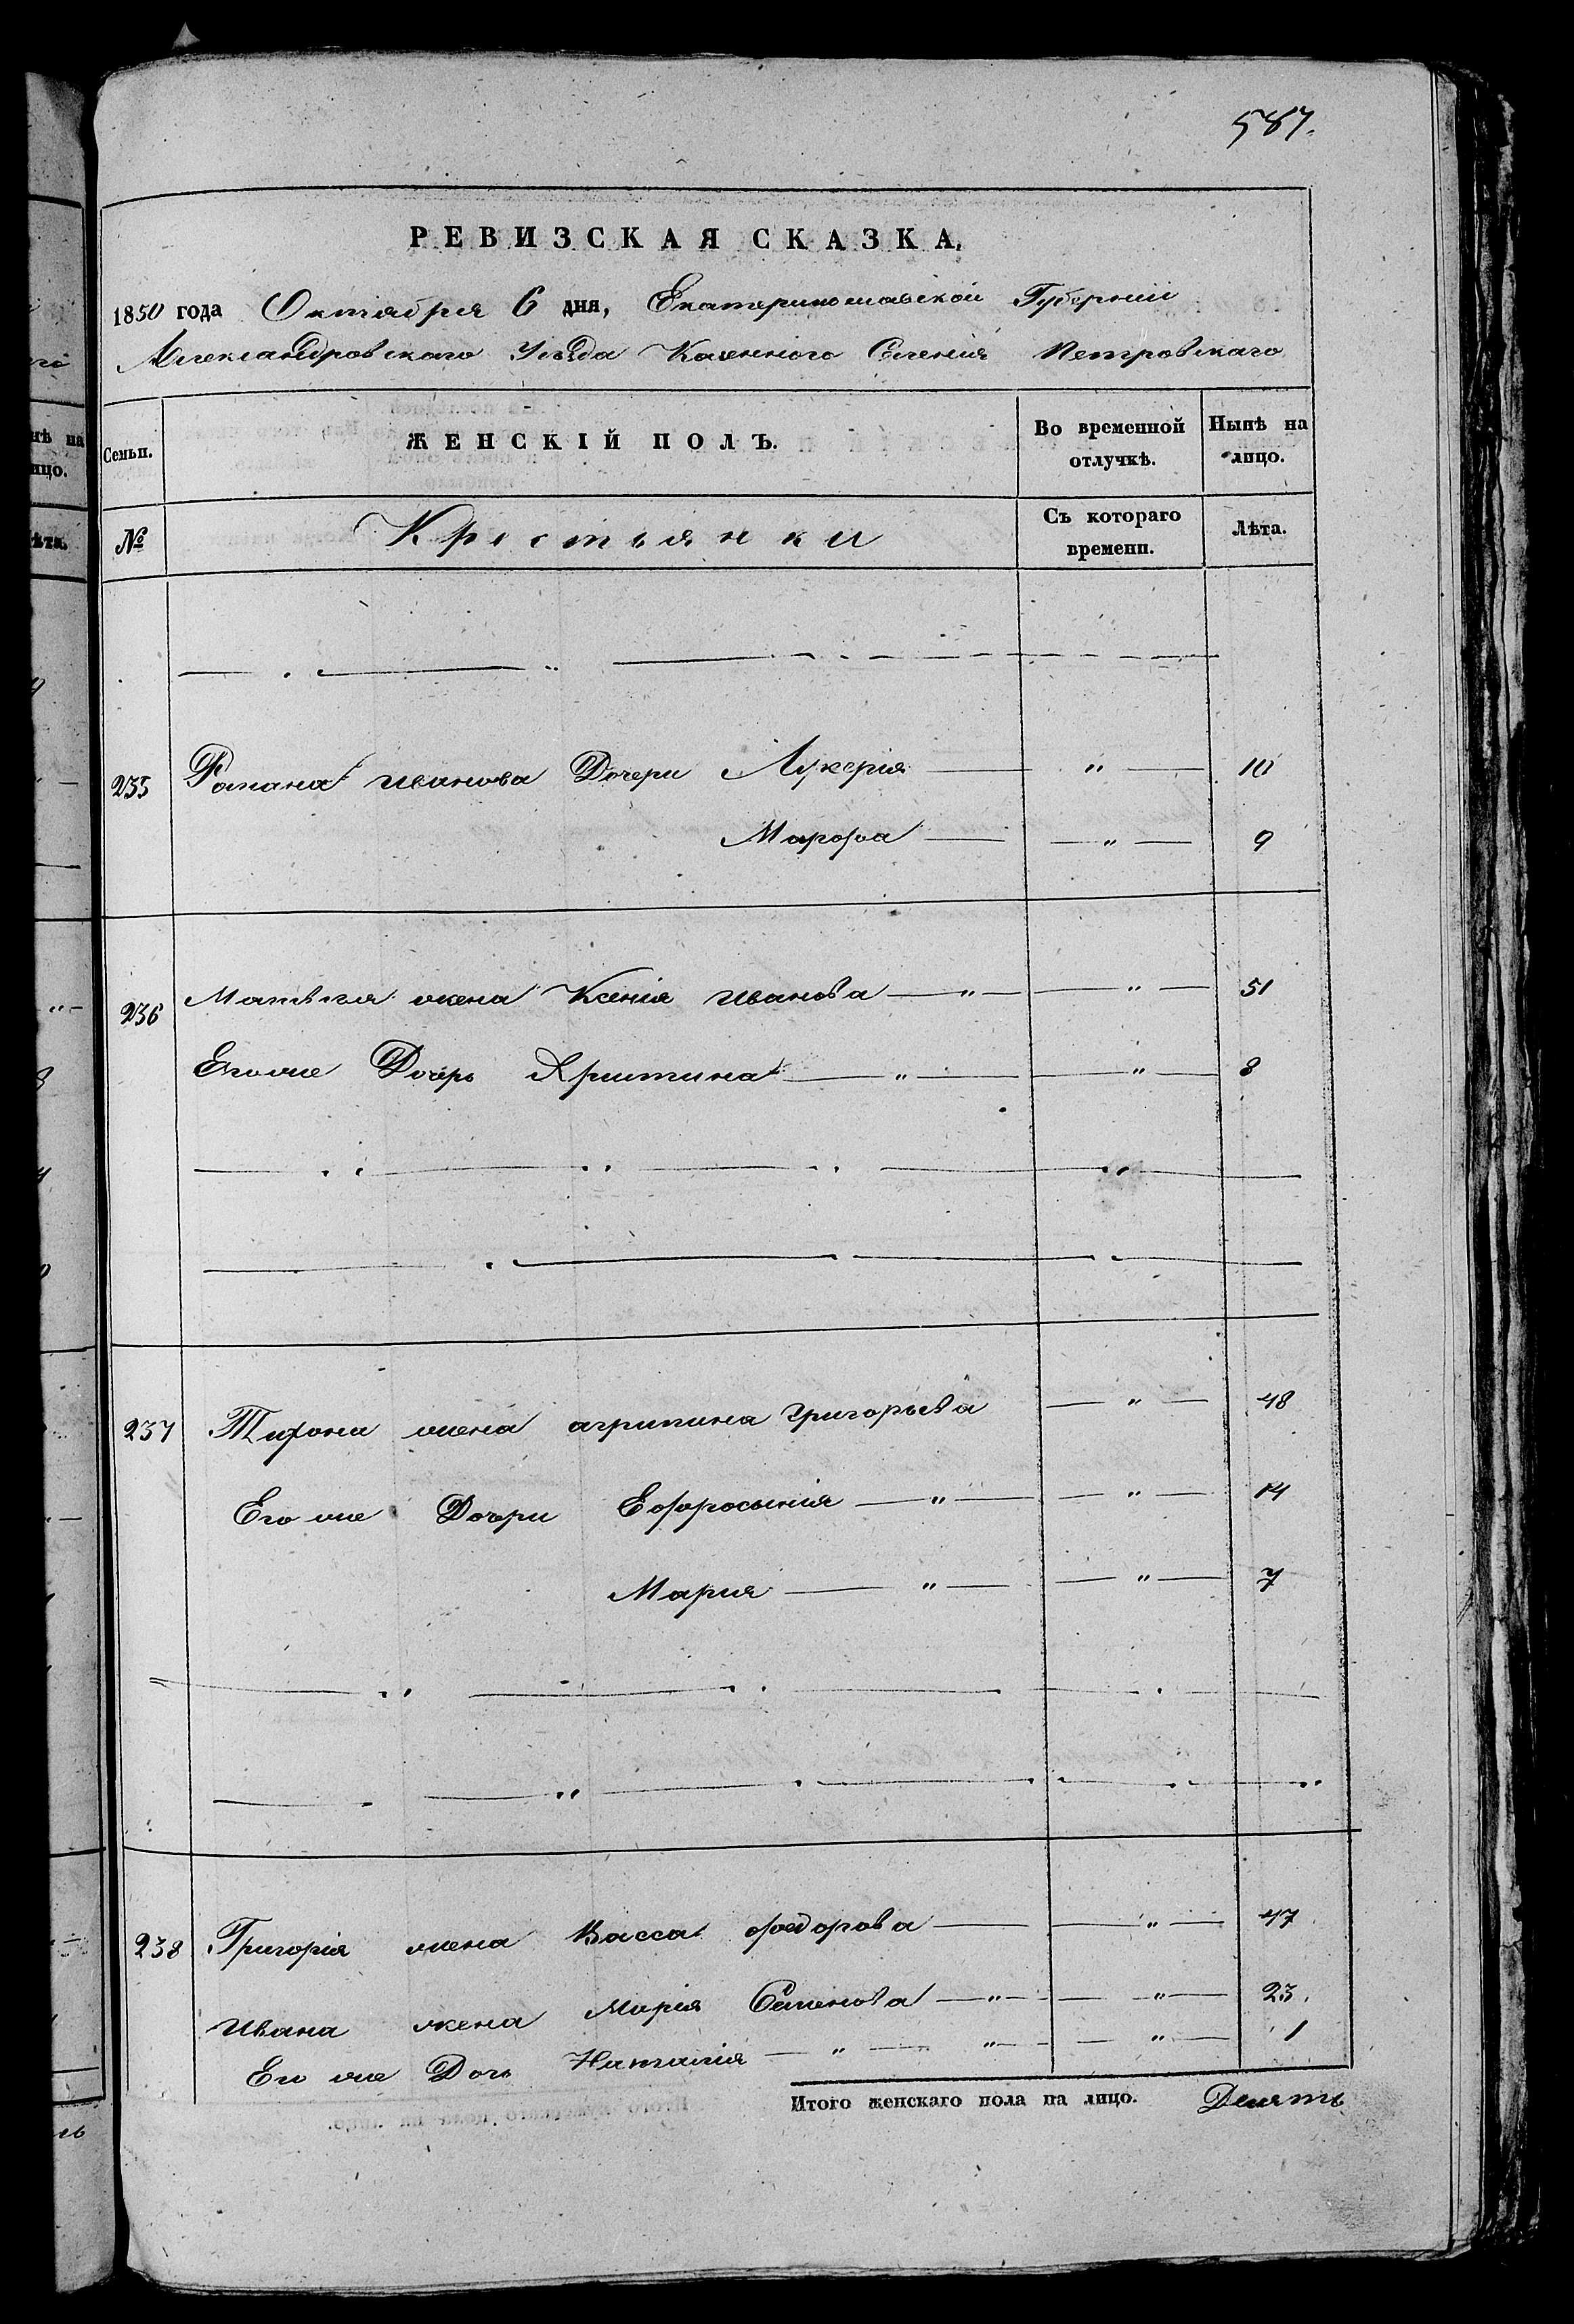 587.
РЕВИЗСКАЯ СКАЗКА,
1850 года Октября 6 дня, Екатеринославской Губернии
Александровскаго Уезда Казеннаго Селенія Петровскаго
Семьи. ЖЕНСКІЙ ПОЛЪ. Во временной отлучкѣ. Нынѣ на лицо.
№ Крестьянки Съ котораго времени. Лѣта.
235 Романа Иванова Дочери Лукерія — " — 10
Марфа — " — 9
236 Матвея жена Ксенія Иванова — " — " — 51
Его же Дочерь Христина — " — " — 8
237 Тихона жена агрипина Григорьева — " — 48
Его же Дочери Ефросынія — " — " — 14
Мария — " — " — 7
238 Григорія жена Васса федорова — " — 47
Ивана жена Марія Семенова — " — " — 23.
Его же Дочь Наталія — " — " — " — 1
Итого женскаго пола на лицо. Девять